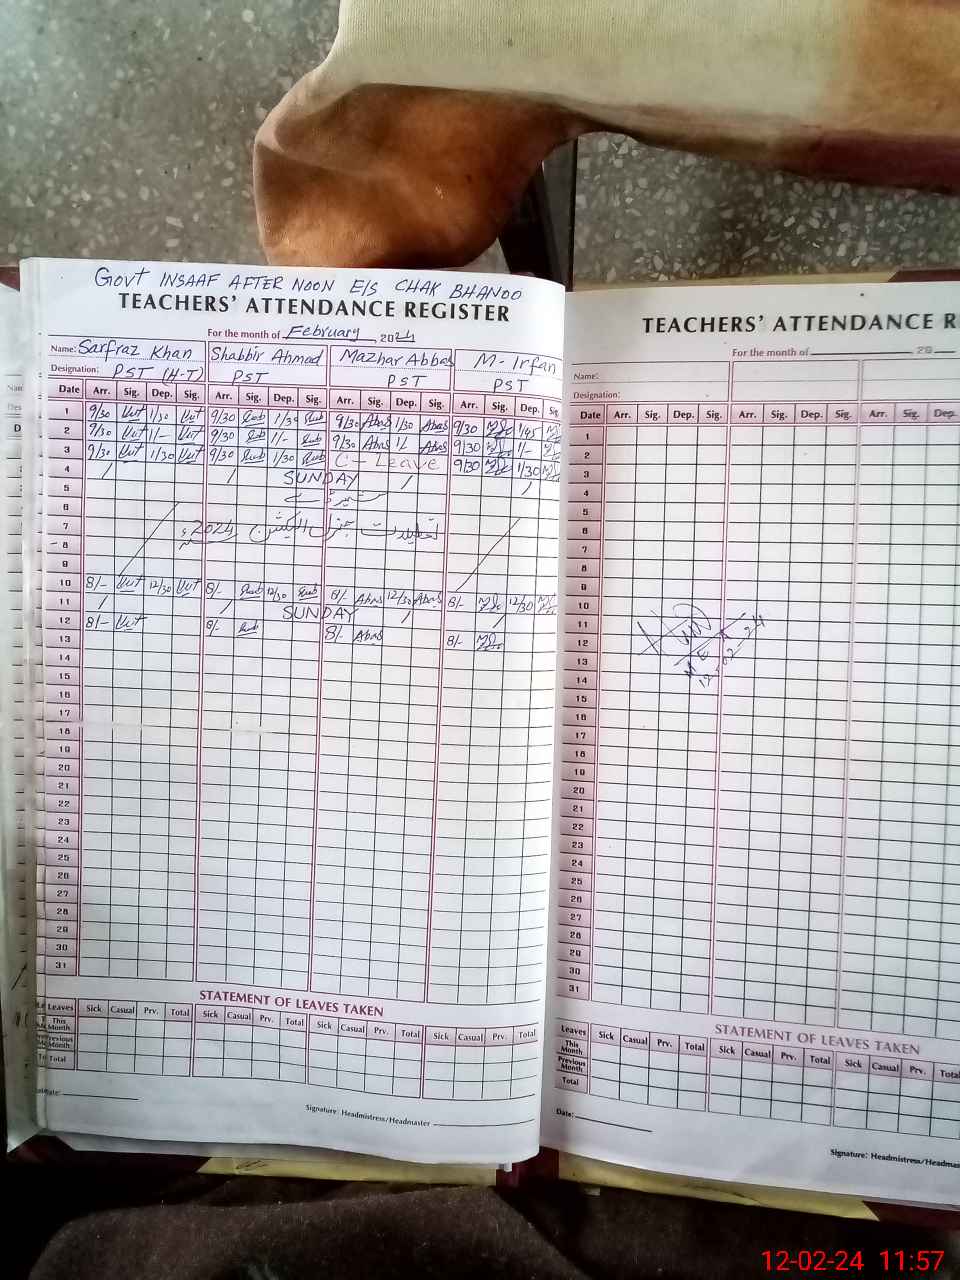 Govt INSAAF AFTER NOON E/S CHAK BHANOO
TEACHERS' ATTENDANCE REGISTER
For the month of February 2024
Name: Sarfraz Khan Shabbir Ahmad Mazhar Abbas M- Irfan
Designation: PST (H-T) PST PST PST
Date Arr. Sig. Dep. Sig. Arr. Sig. Dep. Sig. Arr. Sig. Dep. Sig. Arr. Sig. Dep. Sig.
1 9/30 1/30 9/30 1/30 9/30 Abas 1/30 Abas 9/30 1/45
2 9/30 1/- 9/30 1/- 9/30 Abas 1/ Abas 9/30 1/-
3 9/30 1/30 9/30 1/30 C-Leave 9/30 1/30
4 SUNDAY
5
6
7 تعطیلات جنرل الیکشن 2024ء
8
9
10 8/- 12/30 8/- 12/30 8/- Abas 12/30 Abas 8/- 12/30
11 SUNDAY
12 8/- 8/- 8/- Abas 8/-
13
14
15
16
17
18
19
20
21
22
23
24
25
26
27
28
29
30
31
STATEMENT OF LEAVES TAKEN
Leaves Sick Casual Prv. Total Sick Casual Prv. Total Sick Casual Prv. Total Sick Casual Prv. Total
This Month
Previous Month
Total
Date:
Signature: Headmistress/Headmaster
TEACHERS' ATTENDANCE R
For the month of 20
Name:
Designation:
Date Arr. Sig. Dep. Sig. Arr. Sig. Dep. Sig. Arr. Sig. Dep.
1
2
3
4
5
6
7
8
9
10
11
12
13
14
15
16
17
18
19
20
21
22
23
24
25
26
27
28
29
30
31
MEA
12-02-24
STATEMENT OF LEAVES TAKEN
Leaves Sick Casual Prv. Total Sick Casual Prv. Total Sick Casual Prv. Total
This Month
Previous Month
Total
Date:
Signature: Headmistress/Headmas
12-02-24 11:57